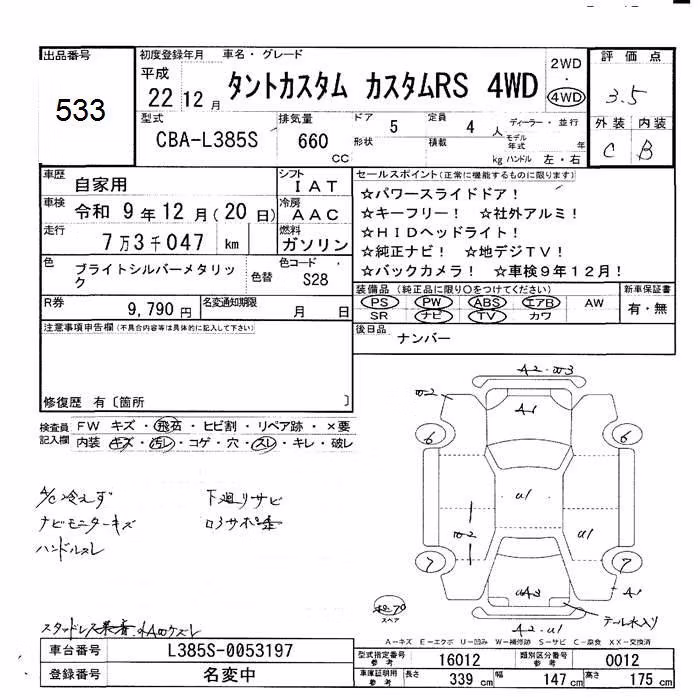 出品番号
533
初度登録年月 車名・グレード
平成
22 12 月
タントカスタム カスタムRS 4WD
2WD
・
4WD
評価点
3.5
外装 内装
C B
型式
CBA-L385S
排気量
660
CC
ドア 5
形状
定員 4 人
積載 kg
ディーラー・並行
モデル年式 年
ハンドル 左・右
車歴 自家用
車検 令和 9年 12月(20日)
走行 7万3千047 km
シフト
IAT
冷房
AAC
燃料
ガソリン
色 ブライトシルバーメタリック
色替
色コード
S28
R券 9,790円
名変通知期限 月 日
セールスポイント(正常に機能するものに限ります)
☆パワースライドドア!
☆キーフリー! ☆社外アルミ!
☆HIDヘッドライト!
☆純正ナビ! ☆地デジTV!
☆バックカメラ! ☆車検9年12月!
装備品(純正品に限り○をつけてください)
PS PW ABS エアB AW
SR ナビ TV カワ
新車保証書
有・無
後日品 ナンバー
注意事項申告欄(不具合内容等は具体的に記入して下さい)
修復歴 有〔箇所 〕
検査員記入欄
FW キズ・飛石・ヒビ割・リペア跡・×要
内装 キズ・汚レ・コゲ・穴・スレ・キレ・破レ
A/C冷えず 下廻りサビ
ナビモニターキズ
ハンドルスレ
A2・W3
W2
A1
6 6
U1
W2
U1
7 7
A1
テール水入り
A2・U1
スペア
A-キズ E-エクボ U-凹み W-補修跡 S-サビ C-腐食 XX-交換済
車台番号 L385S-0053197
登録番号 名変中
型式指定番号 参考 16012
類別区分番号 参考 0012
車庫証明用 参考 長さ 339 cm 幅 147 cm 高さ 175 cm